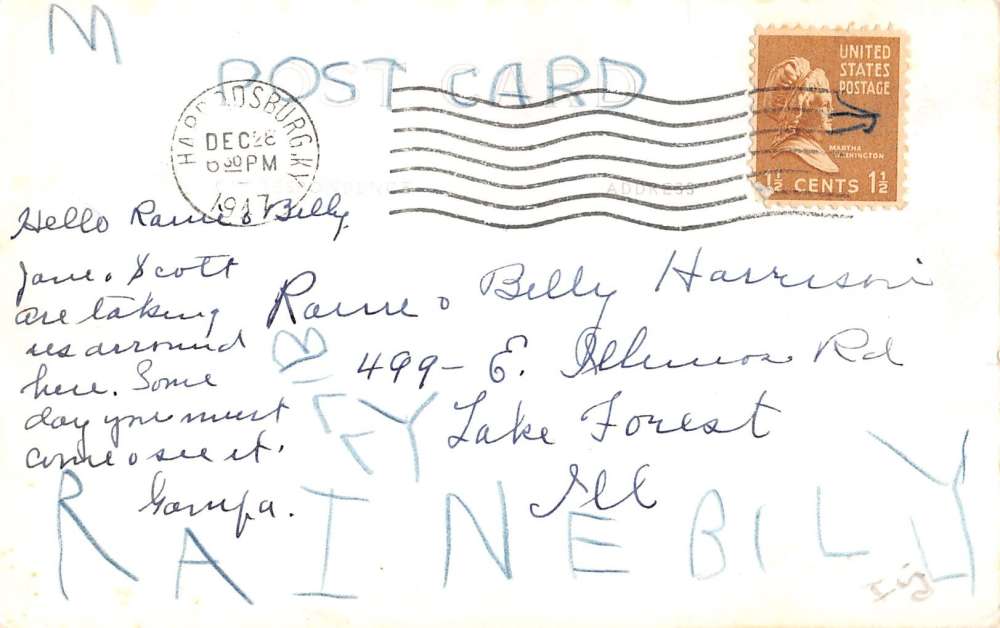 M
POST CARD
HARRODSBURG, KY.
DEC 28
6 30 PM
1947
UNITED
STATES
POSTAGE
MARTHA
WASHINGTON
1½ CENTS 1½
CORRESPONDENCE
ADDRESS
Hello Raine & Billy,
Jane & Scott
are taking
us arround
here. Some
day you must
come & see it.
Gampa.
Raine & Billy Harrison
499- E. Illinois Rd
Lake Forest
Ill
BILLY
RAINE BILLY